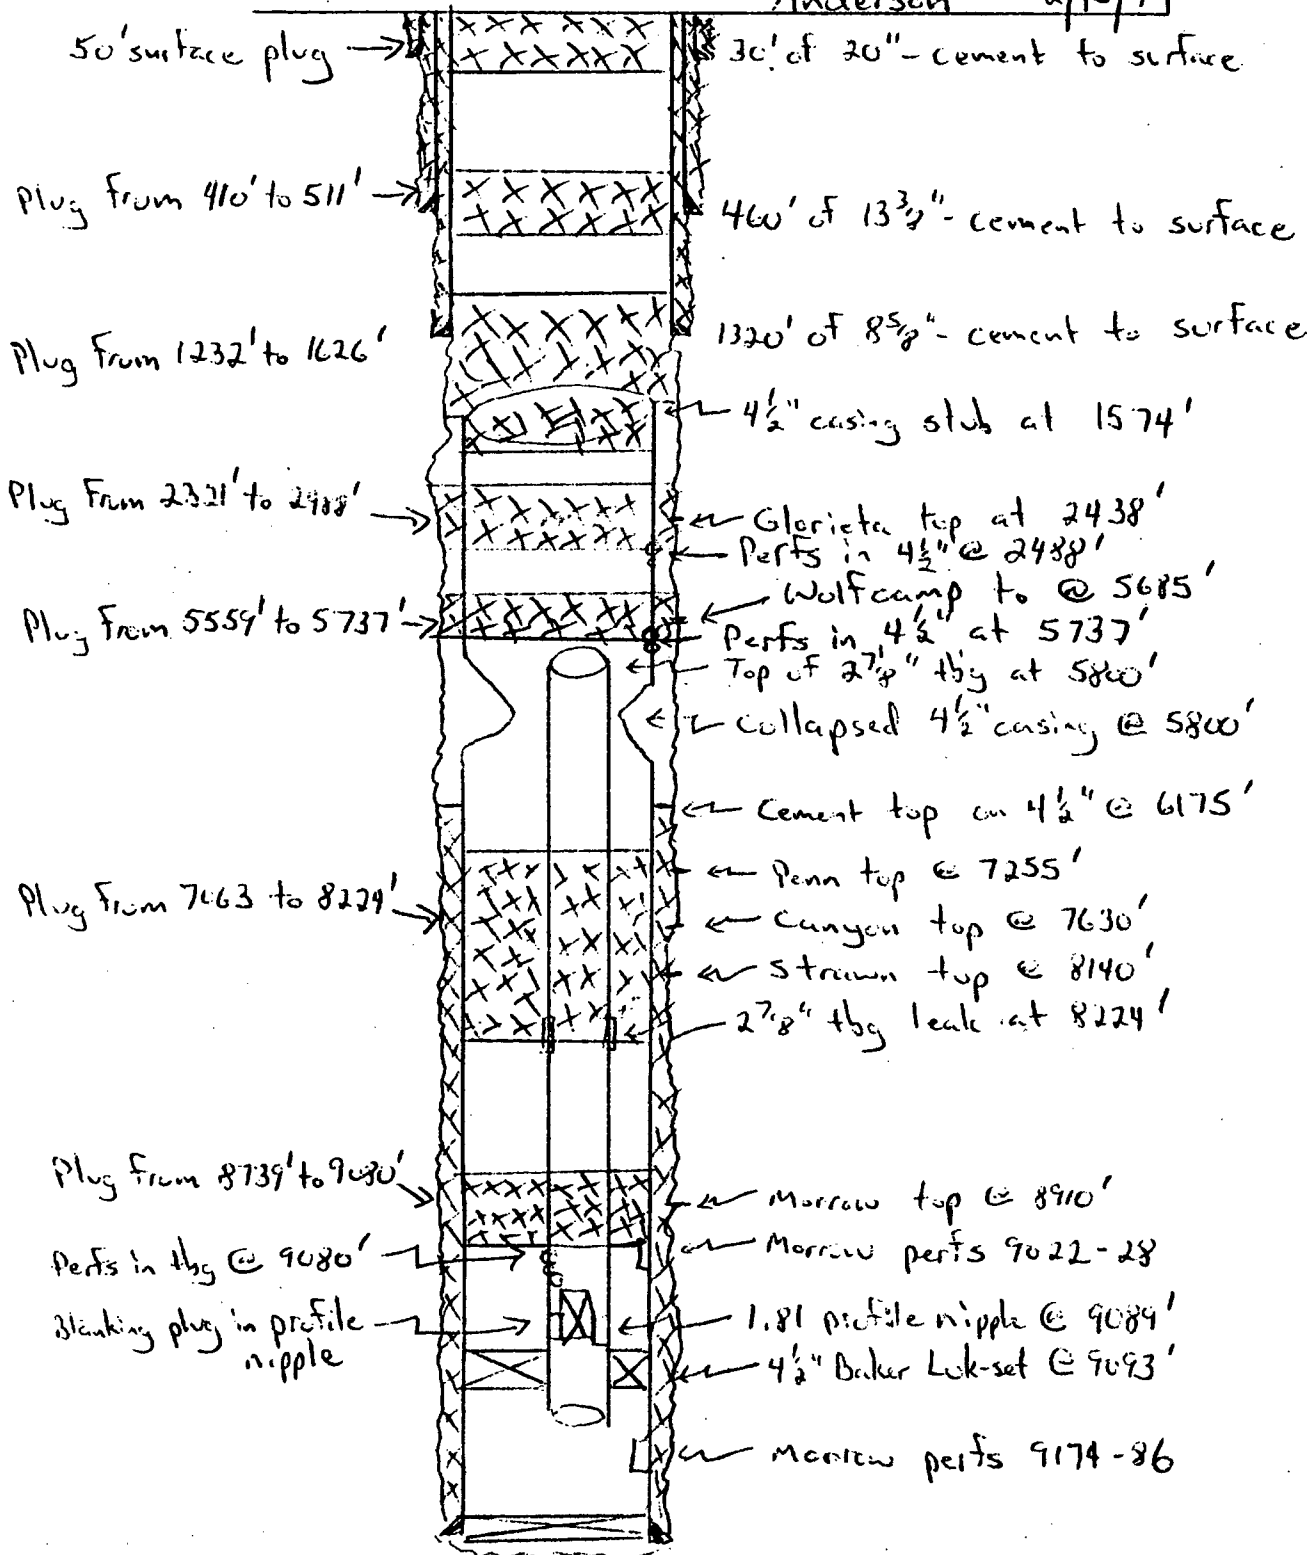 Anderson
50' surface plug
30' of 20" - cement to surface
Plug from 410' to 511'
460' of 13 3/8" - cement to surface
Plug from 1232' to 1626'
1320' of 8 5/8" - cement to surface
4 1/2" casing stub at 1574'
Plug from 2321' to 2488'
Glorieta top at 2438'
Perfs in 4 1/2" @ 2488'
Wolfcamp to @ 5685'
Plug from 5559' to 5737'
Perfs in 4 1/2" at 5737'
Top of 2 7/8" tbg at 5800'
Collapsed 4 1/2" casing @ 5800'
Cement top on 4 1/2" @ 6175'
Penn top @ 7255'
Plug from 7063 to 8224'
Canyon top @ 7630'
Strawn top @ 8140'
2 7/8" tbg leak at 8224'
Plug from 8739' to 9080'
Morrow top @ 8910'
Morrow perfs 9022-28
Perfs in tbg @ 9080'
Blanking plug in profile
nipple
1.81 profile nipple @ 9089'
4 1/2" Baker Lok-set @ 9093'
Morrow perfs 9174-86